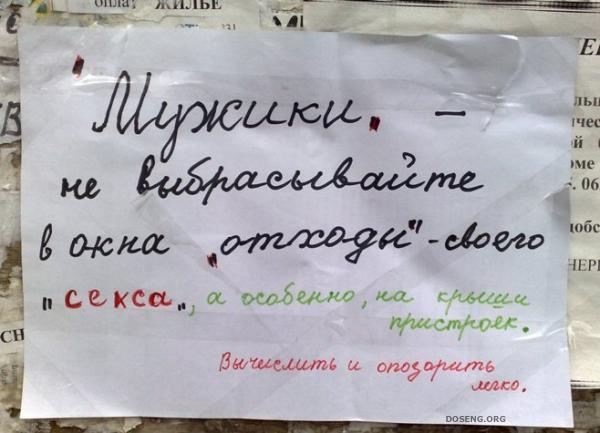 оплат ЖИЛЬЕ
"Мужики" –
не выбрасывайте
в окна „отходы" - своего
"секса", а особенно, на крыши
пристроек.
Вычислить и опозорить
легко.
DOSENG.ORG